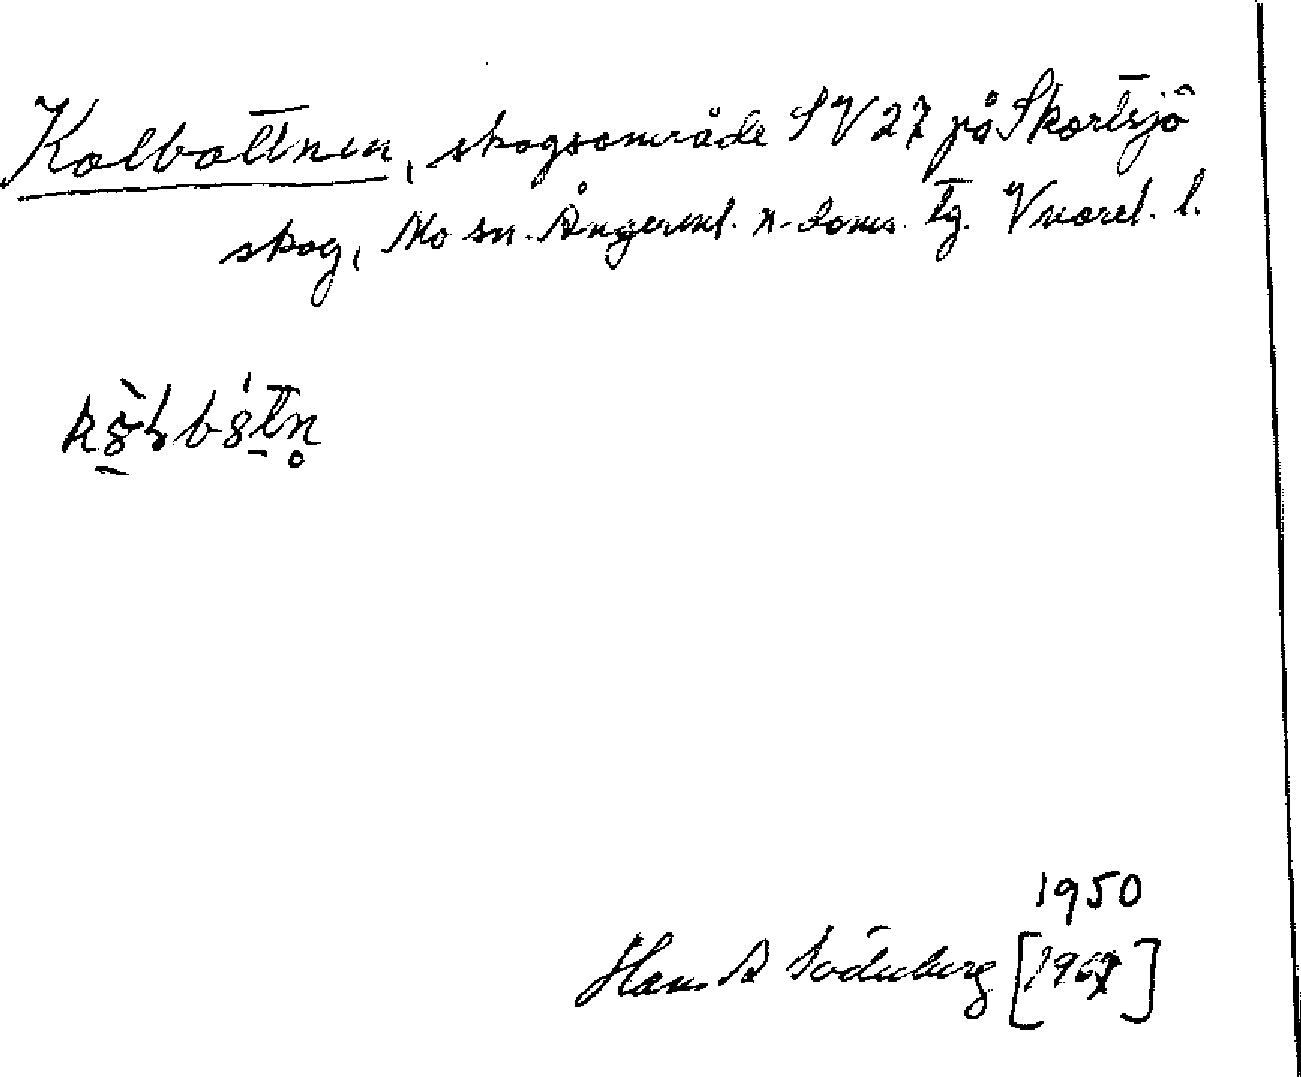 Kolbottnen, skogsområde SV 27 på Skortsjö
skog, Mo sn. Ångerml. n. doms. tg. Vnorrl. l.
1950
Hans A Söderberg [1967]